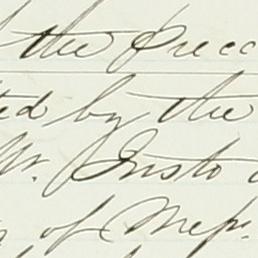 the Prece
ted by the
Mr. Justo
of Mess.